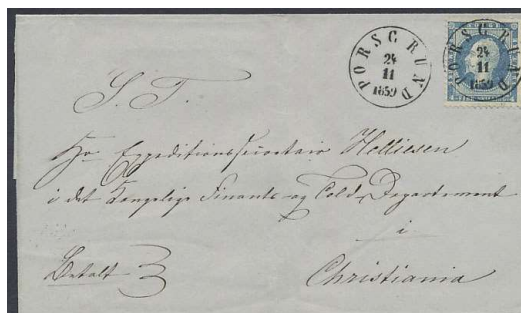 PORSGRUND
24
11
1859
PORSGRUND
24
11
1859
S. T.
Hr Expeditionssecretair Helliesen
i det Kongelige Finants og Told-Departement
i
Betalt
Christiania